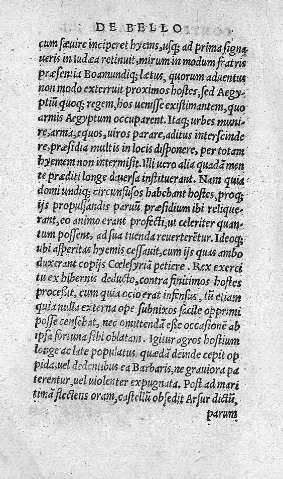 DE BELLO
cum sævire inciperet hyems, usq; ad prima signa
veris in Iudæa retinuit, mirum in modum fratris
præsentia Boamundiq; lætus, quorum adventus
non modo exterruit proximos hostes, sed Aegy-
ptiũ quoq; regem, hos venisse existimantem, quo
armis Aegyptum occuparent. Itaq; urbes muni-
re, arma, equos, viros parare, aditus interscinde
re, præsidia multis in locis disponere, per totam
hyemem non intermisit. Illi vero alia quadã men
te præditi longe diversa instituerant. Nam quia
domi undiq; circunfusos habebant hostes, proq;
ijs propulsandis parvũ præsidium ibi relique-
rant, eo animo erant profecti, ut celeriter quan-
tum possent, ad sua tuenda reverterẽtur. Ideoq;
ubi asperitas hyemis cessavit, cum ijs quas ambo
duxerant copijs Cœlesyriã petiere. Rex exerci
tu ex hibernis deducto, contra finitimos hostes
processit, cum quia ocio erat infensus, tũ etiam
quia nulla externa ope subnixos facile opprimi
posse censebat, nec omittendã esse occasionẽ ab
ipsa fortuna sibi oblatam. Igitur agros hostium
longe ac late populatus, quædã deinde cepit op
pida, vel dedentibus ea Barbaris, ne graviora pa
terentur, vel violenter expugnata. Post ad mari
timã flectens oram, castellũ obsedit Arsur dictũ,
parum